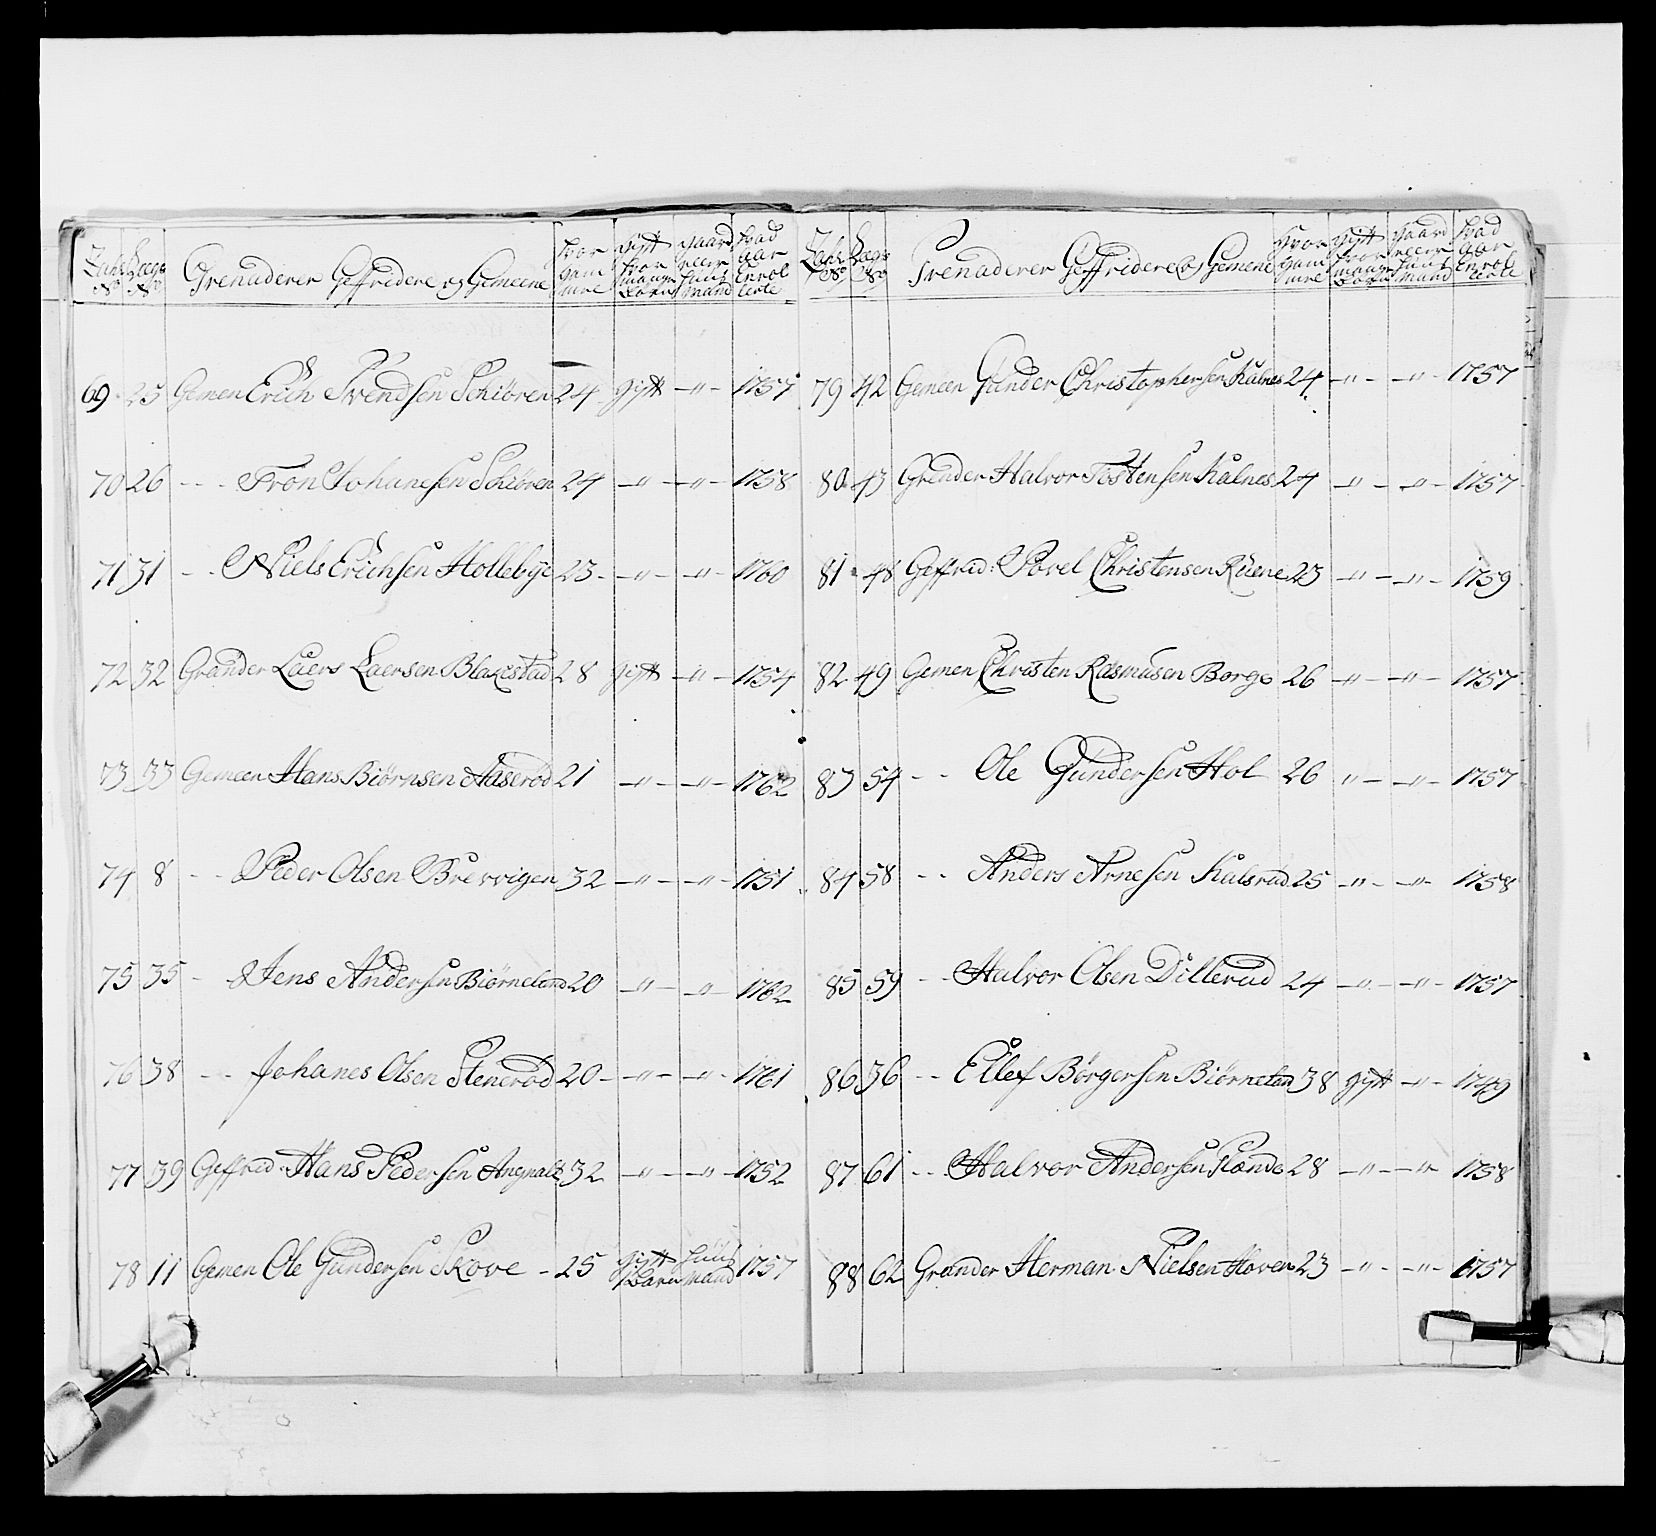 Zahl No Lægs No Grenaderer Geffridere og Gemeene hvor gam mele gift hvor mange børn gaard eller huus mand hvad aar Enrol lerte
69 25 Gemen Erich Svendsen Schiören 24 gift -"- 1757
70 26 - - Tron Johanesen Schiören 24 -"- -"- 1758
71 31 - - Niels Erichsen Hollebye 23 -"- -"- 1760
72 32 Grander Laers Laersen Blakestad 28 gift -"- 1754
73 33 Gemeen Hans Biörnsen Aaseröd 21 -"- -"- 1762
74 8 - - Peder Olsen Brevvigen 32 -"- -"- 1751
75 35 - Jens Andersen Biörneland 20 -"- -"- 1762
76 38 - - Johanes Olsen Steneröd 20 -"- -"- 1761
77 39 Geffrid: Hans Pedersen 32 -"- -"- 1752
78 11 Gemen Ole Gundersen Skove - 25 gift 1 Barn Huus mand 1757
Zahl No Lægs No Grenaderer Geffridere og Gemene hvor gam mele gift hvor mange börn gaard eller huus mand hvad aar Enrol lerte
79 42 Gemeen Gunder Christophersen Kalnes 24 -"- -"- 1757
80 43 Grender Halvor Tostensen Kalnes 24 -"- -"- 1757
81 48 Geffrid: Povel Christensen 23 -"- -"- 1759
82 49 Gemen Christen Rasmusen Borge 26 -"- -"- 1757
83 54 - - Ole Gundersen Hol 26 " - -"- 1757
84 58 - - Anders Arnesen Kalsrud 25 -"- -"- 1758
85 59 - - Halvor Olsen Dillerud 24 -"- -"- 1757
86 56 - - Ellef Börgersen Biörneland 38 gift -"- 1749
87 61 - - Halvor Andersen 28 -"- -"- 1758
88 62 Grander Herman Nielsen Hoven 23 -"- -"- 1757